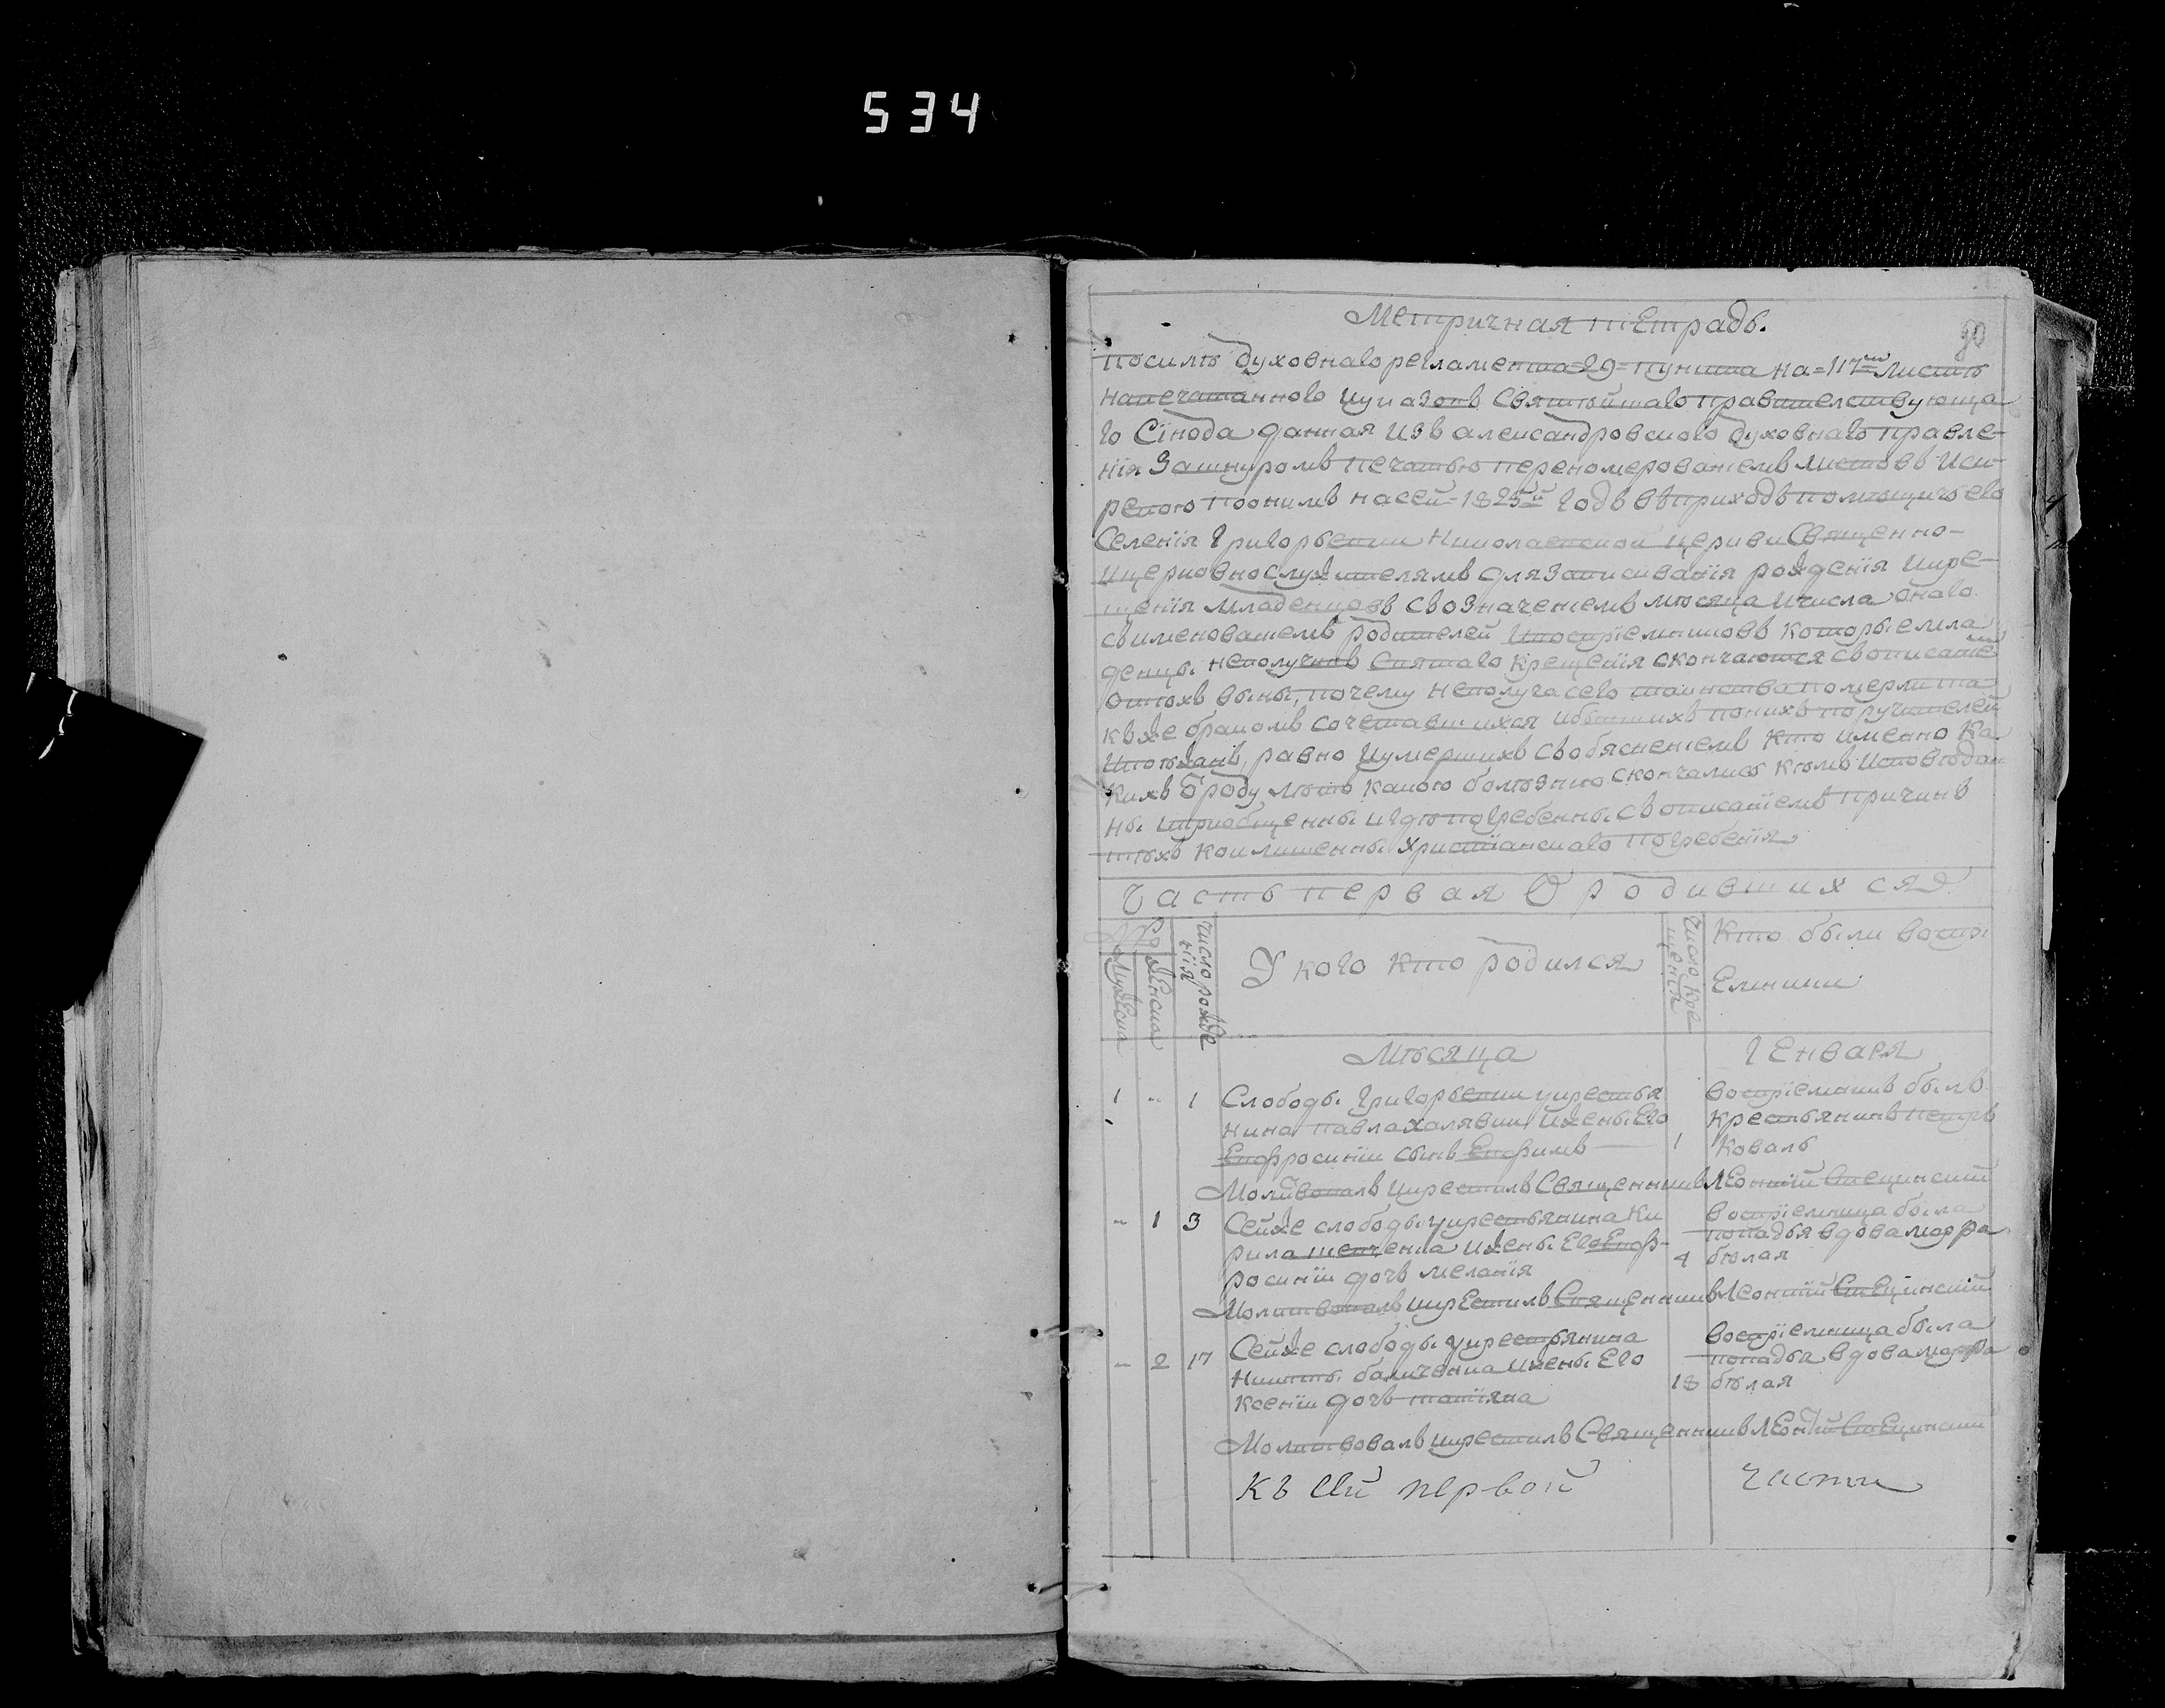 534
Метричная тетрадь.
90
посилѣ духовнаго регламента =29= пункта на =117м листѣ
напечатанного иуказовъ Святѣйшаго правителствующа
го Сїнода данная изъ александровского духовнаго правле-
нїя Зашнуромъ печатью переномерованіемъ листовъ иск-
репою поонимъ насей 1825й годъ въприходъ помѣщичьего
Селенїя Григорьевки Николаевской церкви Священно-
ицерковнослужителямъ длязаписиванїя рожденїя икре-
щенїя младенцовъ совозначеніемъ мѣсяца ичисла онаго
съименованіемъ родителей ивоспріемниковъ которые мла
денцы неполучивъ Святаго Крещенїя скончаются съописаніе
отѣхъ вины, почему неполуча сего таинства померли та-
къже бракомъ сочетавшихся ибывшихъ понихъ поручителей
ипоѣзжанъ, равно иумершихъ собясненіемъ кто именно ка
кихъ ѿроду лѣтъ какою болѣзнію скончались кѣмъ исповѣдан
ны ипріобщенны игдѣ погребенны съ описаніемъ причинъ
тѣхъ кои лишенны христіанскаго погребенїя
Часть первая О родившихся
Мужеска
Женска
Число рожде
нїя
У кого кто родился
Число Кре
щенїя
Кто были воспрі
Емники
Мѣсяца Генваря
1 " 1 Слободы Григорьевки укрестья
нина павла халявки ижены Его
Евфросиніи сынъ Евфимъ
1
воспріемникъ былъ
крестьянинъ петръ
Коваль
Молитвовалъ икрестилъ Священникъ Леонтій
" 1 3 Сейже слободы укрестьянина Ки
рила шевченка ижены Его Евф-
росиніи дочь меланїя
4
воспріемница была
попадья вдова марфа
бѣлая
Молитвовалъ икрестилъ Священникъ Леонтій
" 2 17 Сейже слободы укрестьянина
Никиты ижены Его
Ксеніи дочь татїяна
18
воспріемница была
попадья вдова марфа
бѣлая
Молитвовалъ икрестилъ Священникъ Леонтій
Къ сей первой части